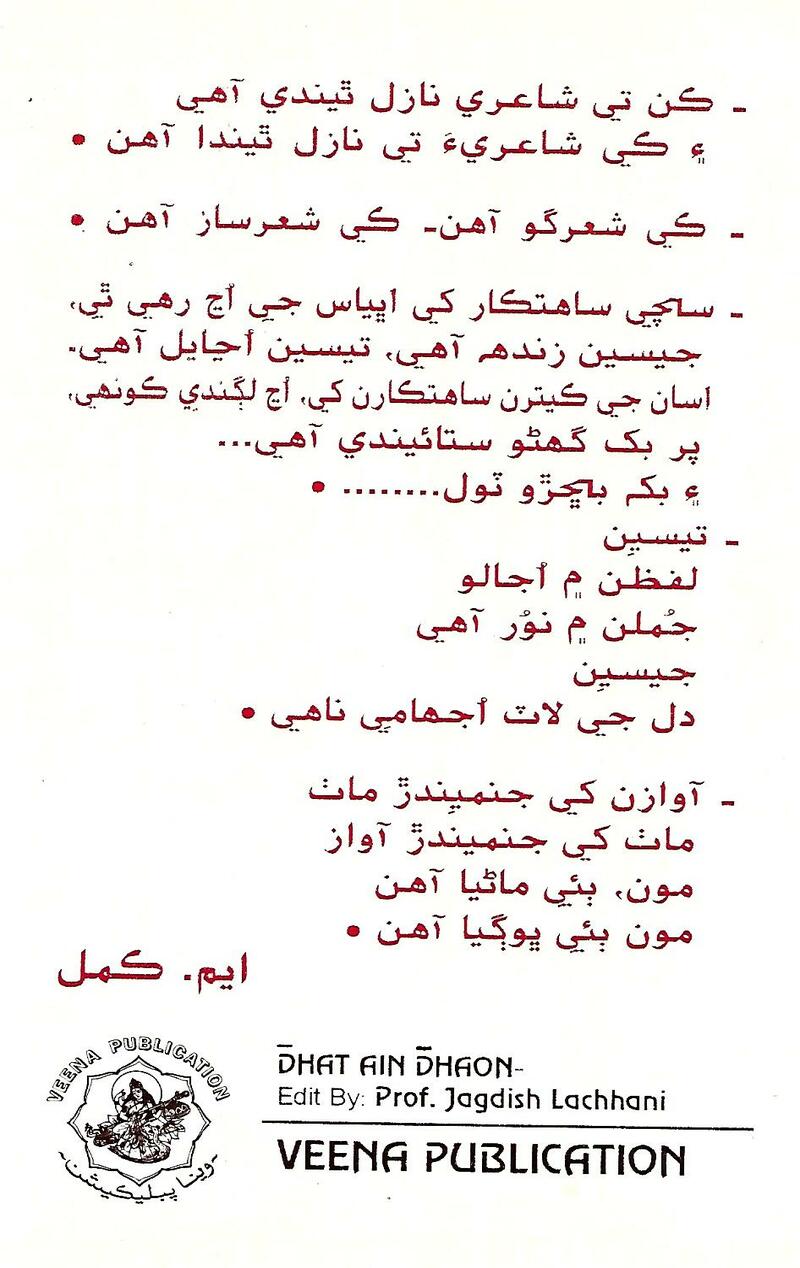 - ڪن تي شاعري نازل ٿيندي آهي
۽ ڪي شاعريءَ تي نازل ٿيندا آهن •
- ڪي شعرگو آهن۔ ڪي شعرساز آهن •
- سچي ساهتڪار کي اڀياس جي اُڃ رهي ٿي،
جيسين زندهہ آهي، تيسين اُڃايل آهي۔
اسان جي ڪيترن ساهتڪارن کي، اُڃ لڳندي ڪونهي،
پر بک گهڻو ستائيندي آهي...
۽ بکہ بڇڙو ٽول........ •
- تيسيِن
لفظن ۾ اُجالو
جُملن ۾ نوُر آهي
جيسيِن
دل جي لاٽ اُجهامي ناهي •
- آوازن کي جنميندڙ ماٺ
ماٺ کي جنميندڙ آواز
مون، ٻئي ماڻيا آهن
مون ٻئي ڀوڳيا آهن •
ايم. ڪمل
VEENA PUBLICATION
وينا پبليڪيشن
D̄HAT AIN D̄HAON-
Edit By: Prof. Jagdish Lachhani
VEENA PUBLICATION